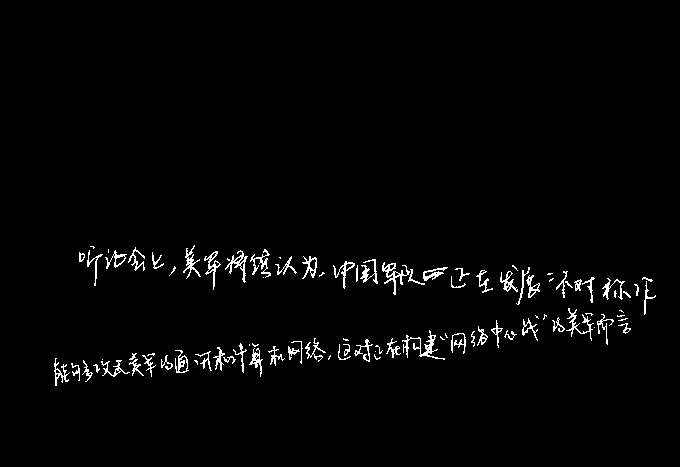 听证会上,美军将领认为,中国军队正在发展“不对称作
能够攻击美军的通讯和计算机网络,这对正在构建“网络中心战”的美军而言